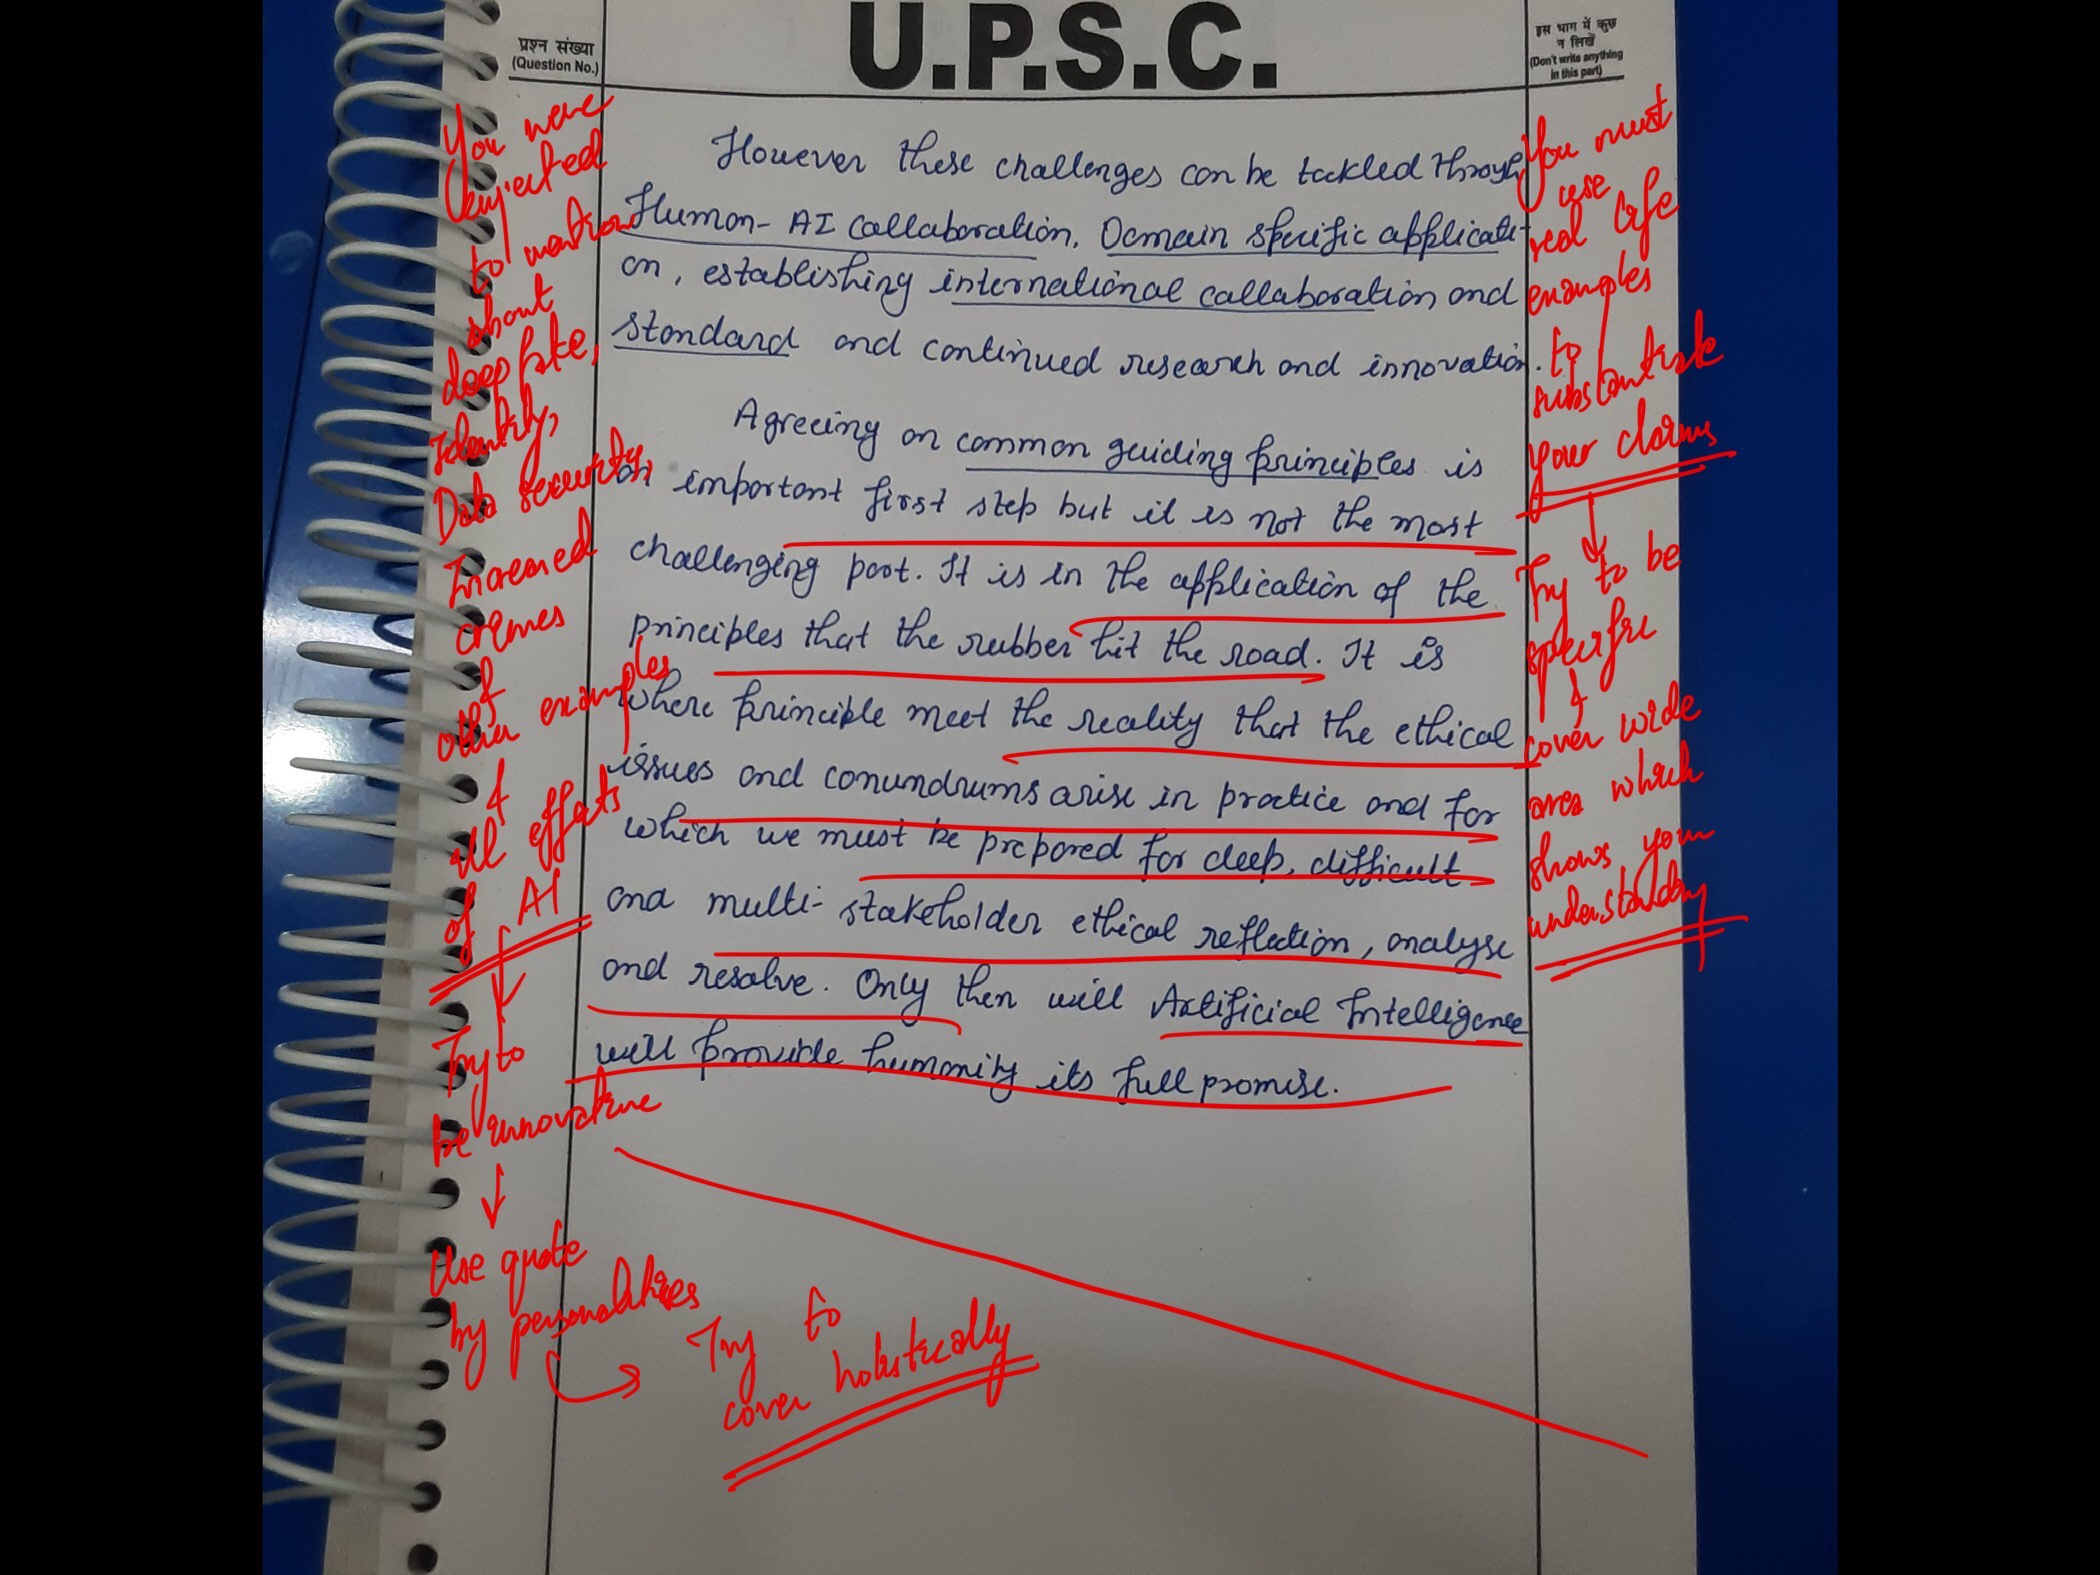 प्रश्न संख्या
(Question No.)
U.P.S.C.
इस भाग में कुछ
न लिखें
(Don't write anything
in this part)
However these challenges can be tackled through
Human-AI collaboration, Domain specific applicati-
on, establishing international collaboration and
standard and continued research and innovation.
Agreeing on common guiding principles is
an important first step but it is not the most
challenging part. It is in the application of the
principles that the rubber hit the road. It is
where principle meet the reality that the ethical
issues and conundrums arise in practice and for
which we must be prepared for deep, difficult
and multi-stakeholder ethical reflection, analyse
and resolve. Only then will Artificial Intelligence
will provide humanity its full promise.
You were
expected
to mention
about
deepfake,
Identity,
Data security,
Increased
crimes
&
other examples
&
all effects
of AI
Try to
be innovative
↓
Use quote
by personalities
Try to
cover holistically
You must
use
real life
examples
to
substantiate
your claims
↓
Try to be
specific
&
cover wide
area which
shows your
understanding